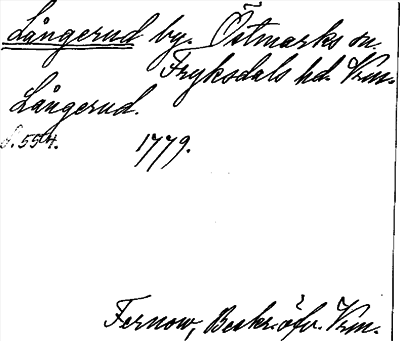 Långerud by. Östmarks sn.
Fryksdals hd. Vrm.
Långerud.
s. 554. 1779.
Fernow, Beskr. öfv. Vrm.